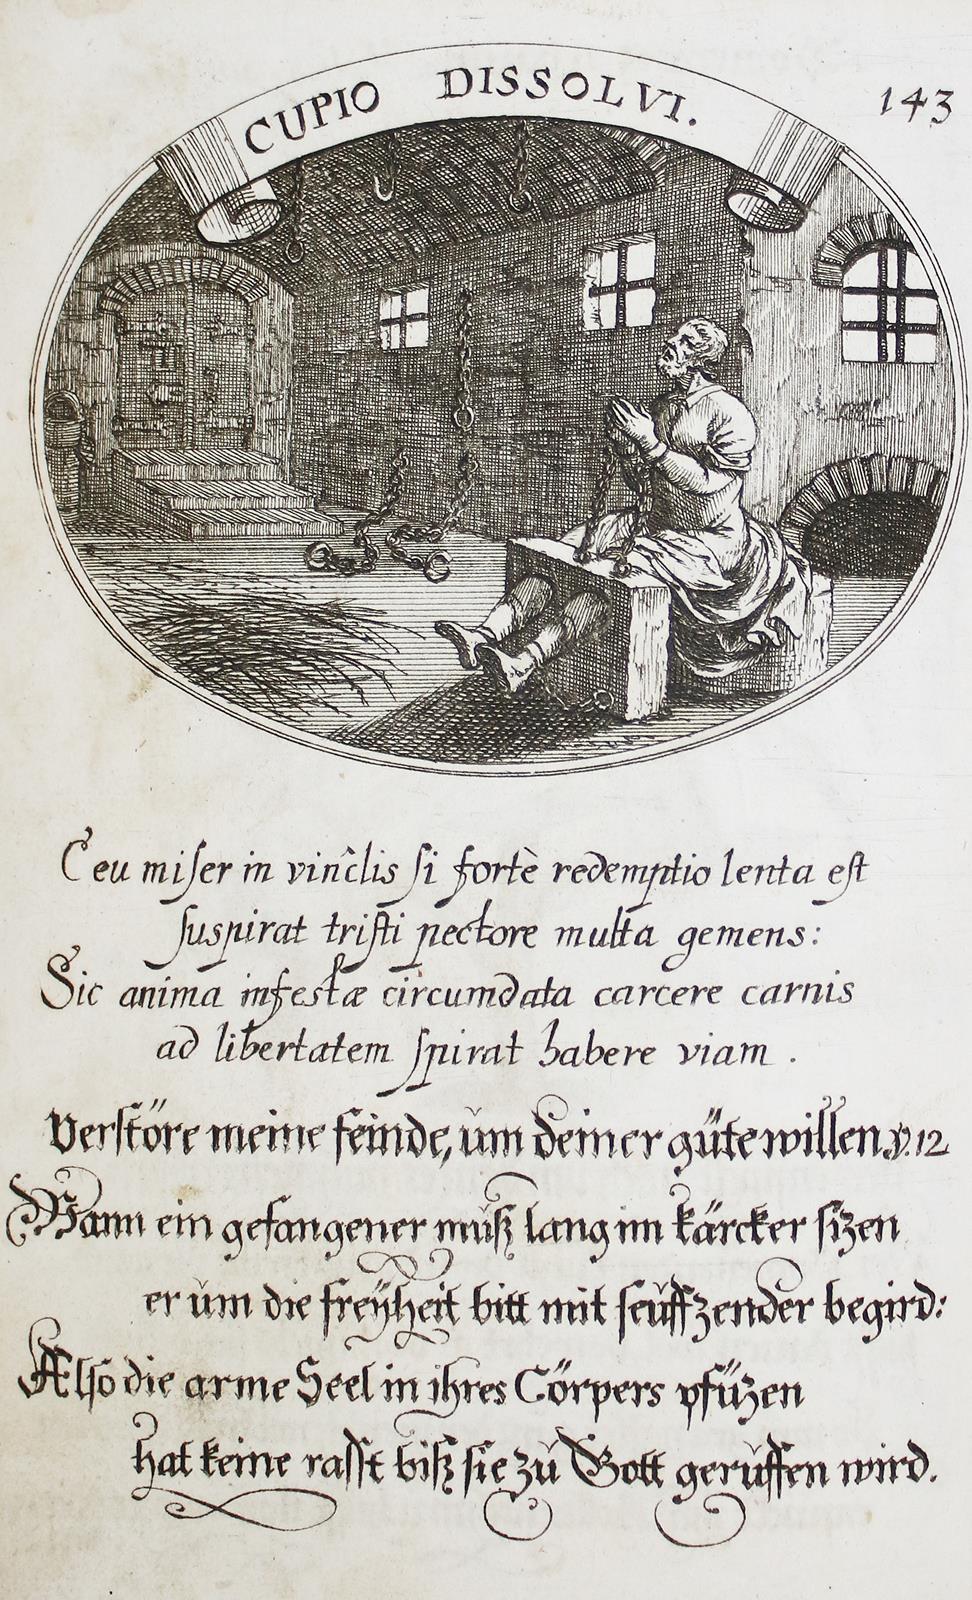 CUPIO DISSOLVI.
143
Ceu miſer in vinclis ſi fortè redemptio lenta eſt
ſuspirat triſti pectore multa gemens:
Sic anima infeſtæ circumdata carcere carnis
ad libertatem ſpirat habere viam.
Verſtöre meine feinde, ŭm deiner güte willen ꝟ. 12
Wann ein gefangener mŭß lang im kärcker ſizen
er ŭm die freÿheit bitt mit ſeŭffzender begird:
Alſo die arme Seel in ihres Cörpers pfüzen
hat keine raſſt biß ſie zŭ Gott gerŭffen wird.